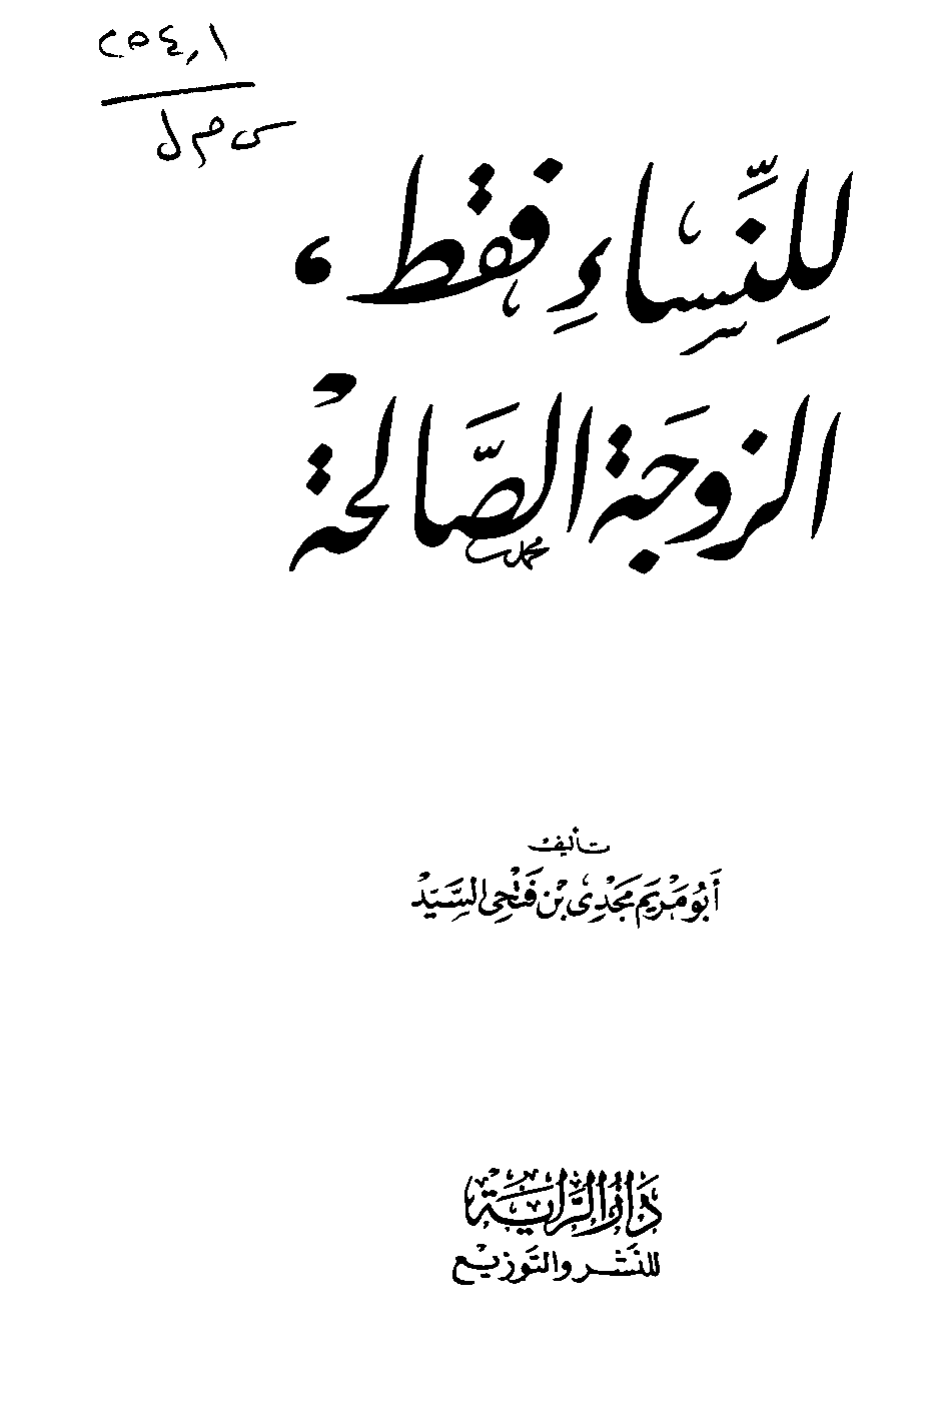 ٢٥٤,١
س م ل
لِلنِّسَاءِ فَقط ،
الزوجَة الصَّالحة
تأليف
أَبُو مَرْيَم مَجْدِي بْن فَتْحِي السَّيِّدْ
دَارُ الرَّايَة
للنَشْر والتَوزيْع